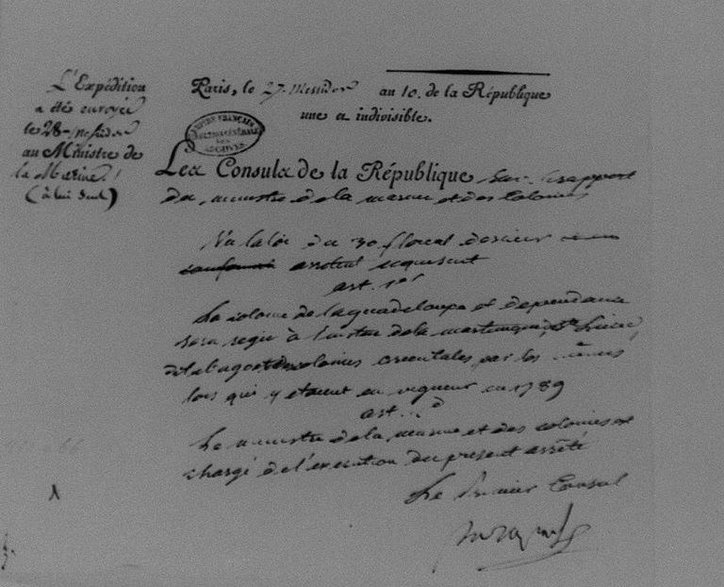 L'Expédition
a été envoyée
le 28 messidor
au Ministre de
la Marine.
(à lui seul)
Paris, le 27 Messidor an 10. de la République
une et indivisible.
ARCHIVES
Les Consuls de la République, sur le rapport
du ministre de la marine et des Colonies
Vu la loi du 30 floréal dernier
arrêtent ce qui suit
art. 1er
La colonie de la guadeloupe et dependances
sera regie à l'instar de la martinique, Ste Lucie,
de tabago et des colonies orientales par les mêmes
lois qui y etaient en vigueur en 1789
art.
Le ministre de la marine et des colonies est
chargé de l'execution du present arrêté
Le Premier Consul